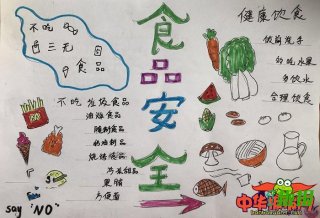 食品安全
不吃
三无
食品
不吃垃圾食品
油炸食品
腌制食品
奶油制品
烧烤食品
冷冻甜品
果脯
方便面
say "NO"
健康饮食
饭前洗手
多吃水果
多饮水
合理饮食